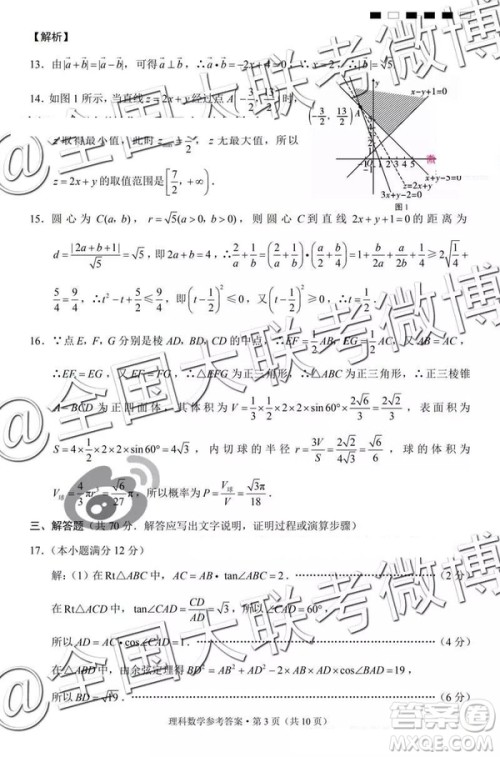 【解析】
13．由|a+b|=|a−b|，可得a⊥b，∴a·b=−2x+4=0，∴|b|=√5
14．如图1所示，当直线z=2x+y经过点A(−3/2, 13/2)时，
z取得最小值，此时 z无最大值，所以
z=2x+y的取值范围是[7/2, +∞)．
(−3/2, 13/2)
x−y+1=0
z=2x+y
x+y−5=0
3x+y−2=0
图1
15．圆心为C(a, b)，r=√5(a>0, b>0)，则圆心C到直线2x+y+1=0的距离为
d=|2a+b+1|/√5=√5，即2a+b=4，∴2/a+1/b=(2/a+1/b)·(a/2+b/4)=1+1/4+a/2b+b/2a≥2√(1/4)+
5/4=9/4，∴t²−t+5/2≤9/4，即(t−1/2)²≤0，又(t−1/2)²≥0，∴t=1/2．
16．∵点E，F，G分别是棱AD，BD，CD的中点，∴EF=1/2AB，EG=1/2AC，又AB=AC，
∴EF=EG，又EF=FG，∴△EFG为正三角形，∴△ABC为正三角形，∴正三棱锥
A—BCD为正四面体，其体积为V=1/3×1/2×2×2×sin60°×2√6/3=2√2/3，表面积为
S=4×1/2×2×2×sin60°=4√3，内切球的半径r=3V/S=2√2/4√3=√6/6，球的体积为
V球=4/3πr³=√6/27π，所以概率为P=V球/V=√3π/18．
三、解答题（共70分．解答应写出文字说明，证明过程或演算步骤）
17．（本小题满分12分）
解：（1）在Rt△ABC中，AC=AB·tan∠ABC=2．（2分）
在Rt△ACD中，tan∠CAD=CD/AD=√3，∴∠CAD=60°，
所以AD=AC·cos∠CAD=1．（4分）
在△ABD中，由余弦定理得BD²=AB²+AD²−2AB·AD·cos∠BAD=19，
所以BD=√19．（6分）
理科数学参考答案·第3页（共10页）
@全国大联考微博
@全国大联考微博
答案圈
MXQE.COM